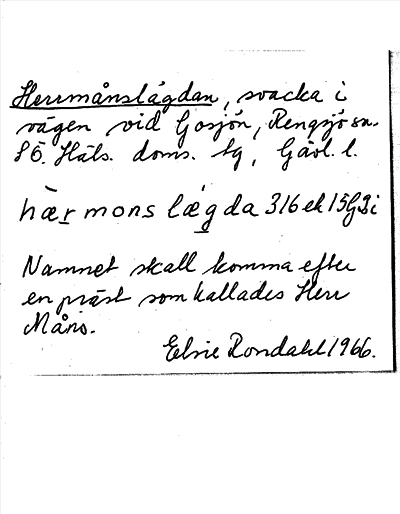 Herrmånslägdan, svacka i
vägen vid Gosjön, Rengsjö sn.
SÖ. Häls. doms. tg, Gävl. l.
hær mons lægda 316 ek 15G3i
Namnet skall komma efter
en präst som kallades Herr
Måns.
Elsie Rondahl 1966.